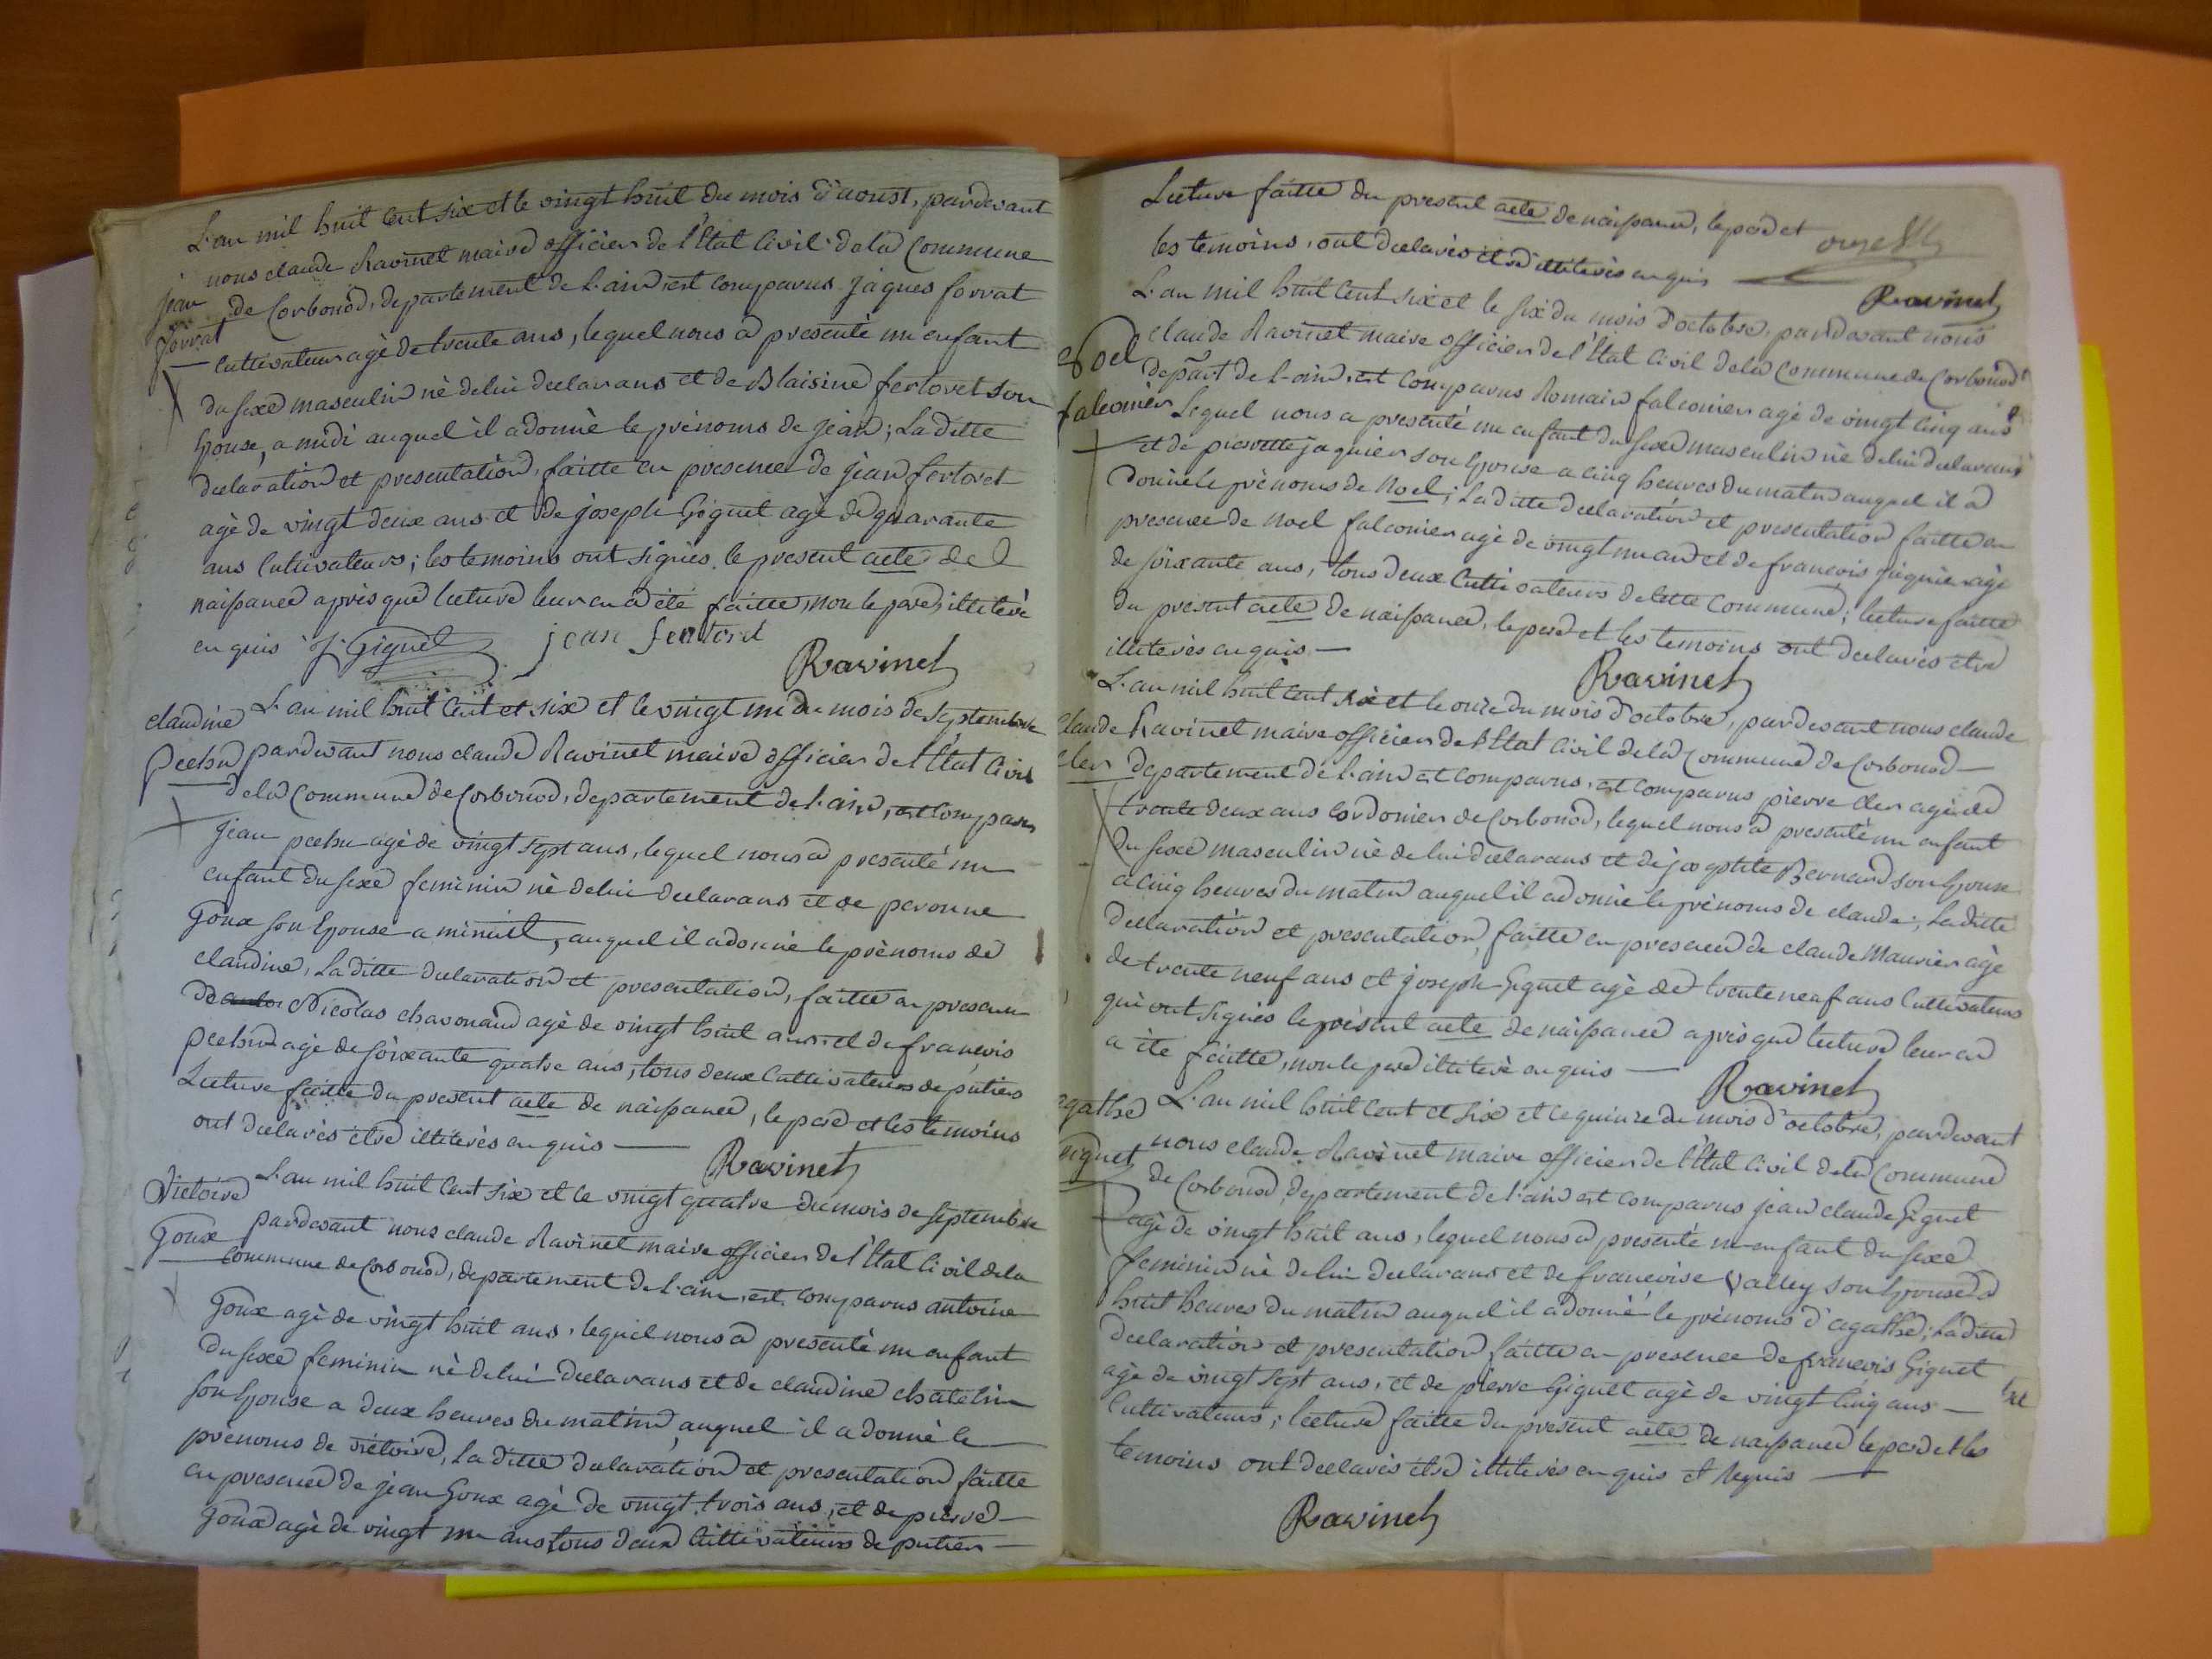 L'an mil huit cent six et le vingt huit du mois d'aoust, pardevant
jean nous claude Ravinet maire officier de l'Etat Civil de la Commune
forrat de Corbonod, departement de l'ain, est comparus jaques forrat
Cultivateur agè de trente ans, lequel nous a presentè un enfant
du sexe masculin nè de lui declarans et de Blaisine fertoret son
Epouse, a midi auquel il a donnè le prénoms de jean; La ditte
declaration et presentation, faitte en presence de jean fertoret
agè de vingt deux ans et de joseph Giguet agè de quarante
ans Cultivateurs; les temoins ont signès le present acte de
naissance après que lecture leur en a été faitte, non le pere illiterè
en quis J. Giguet jean fertoret
Ravinet
claudine L'an mil huit Cent et six et le vingt un du mois de Septembre
pechu pardevant nous claude Ravinet maire officier de l'Etat Civil
de la Commune de Corbonod, departement de l'ain, est Comparus
jean pechu agè de vingt sept ans, lequel nous a presenté un
enfant du sexe feminin nè de lui declarans et de peronne
Goux son Epouse a minuit, auquel il a donnè le prènoms de
claudine, La ditte declaration et presentation, faitte en presence
de Nicolas chavonand agè de vingt huit ans et de françois
pechu agè de soixante quatre ans, tous deux Cultivateurs de putier
Lecture faitte du present acte de naissance, le pere et les temoins
ont declarès etre illiterès en quis —
Ravinet
Victoire L'an mil huit Cent six et le vingt quatre du mois de septembre
Goux pardevant nous claude Ravinet maire officier de l'Etat Civil de la
Commune de Corbonod, departement de l'ain, est Comparus antoine
Goux agè de vingt huit ans, lequel nous a presentè un enfant
du sexe feminin nè de lui declarans et de claudine chatelin
son Epouse a deux heures du matin, auquel il a donnè le
prènoms de victoire, La ditte declaration et presentation faitte
en presence de jean Goux agè de vingt trois ans, et de pierre
Goux agè de vingt un ans tous deux Cultivateurs de putier —
Lecture faitte du present acte de naissance, le pere et
les temoins, ont declarès etre illiterès en quis
Ravinet
L'an mil huit Cent six et le six du mois d'octobre, pardevant nous
Noel claude Ravinet maire officier de l'Etat Civil de la Commune de Corbonod
falconier depart de l'ain, est Comparus Romain falconier agè de vingt Cinq ans
Lequel nous a presenté un enfant du sexe masculin nè de lui declarans
et de pierrette jaquier son Epouse a cinq heures du matin auquel il a
donnè le prènoms de Noel; La ditte declaration et presentation faitte en
presence de noel falconier agè de vingt un an et de francois jiquier agè
de soixante ans, tous deux Cultivateurs de cette Commune; lecture faitte
du present acte de naissance, le pere et les temoins ont declarès etre
illiterès en quis —
Ravinet
L'an mil huit Cent six et le onze du mois d'octobre, pardevant nous claude
claude Ravinet maire officier de l'Etat Civil de la Commune de Corbonod —
cler departement de l'ain est Comparus, est comparus pierre cler agè de
trente deux ans Cordonier de Corbonod, lequel nous a presentè un enfant
du sexe masculin nè de lui declarans et de Bernard son Epouse
a Cinq heures du matin auquel il a donnè le prènoms de claude; La ditte
declaration et presentation, faitte en presence de claude Maurier agè
de trente neuf ans et joseph Giguet agè de trente neuf ans Cultivateurs
qui ont signès le present acte de naissance après que lecture leur en
a ètè faitte, non le pere illiterè en quis —
Ravinet
agathe L'an mil huit Cent et six et le quinze du mois d'octobre, pardevant
Giguet nous claude Ravinet maire officier de l'Etat Civil de la Commune
de Corbonod, departement de l'ain est comparus jean claude Giguet
agè de vingt huit ans, lequel nous a presentè un enfant du sexe
feminin nè de lui declarans et de francoise Valley son Epouse a
huit heures du matin auquel il a donnè le prènoms d'agathe; La ditte
declaration et presentation, faitte en presence de francois Giguet
agè de vingt sept ans, et de pierre Giguet agè de vingt Cinq ans —
Cultivateurs; lecture faitte du present acte de naissance le pere et les
temoins ont declarès etre illiterès en quis et requis —
Ravinet